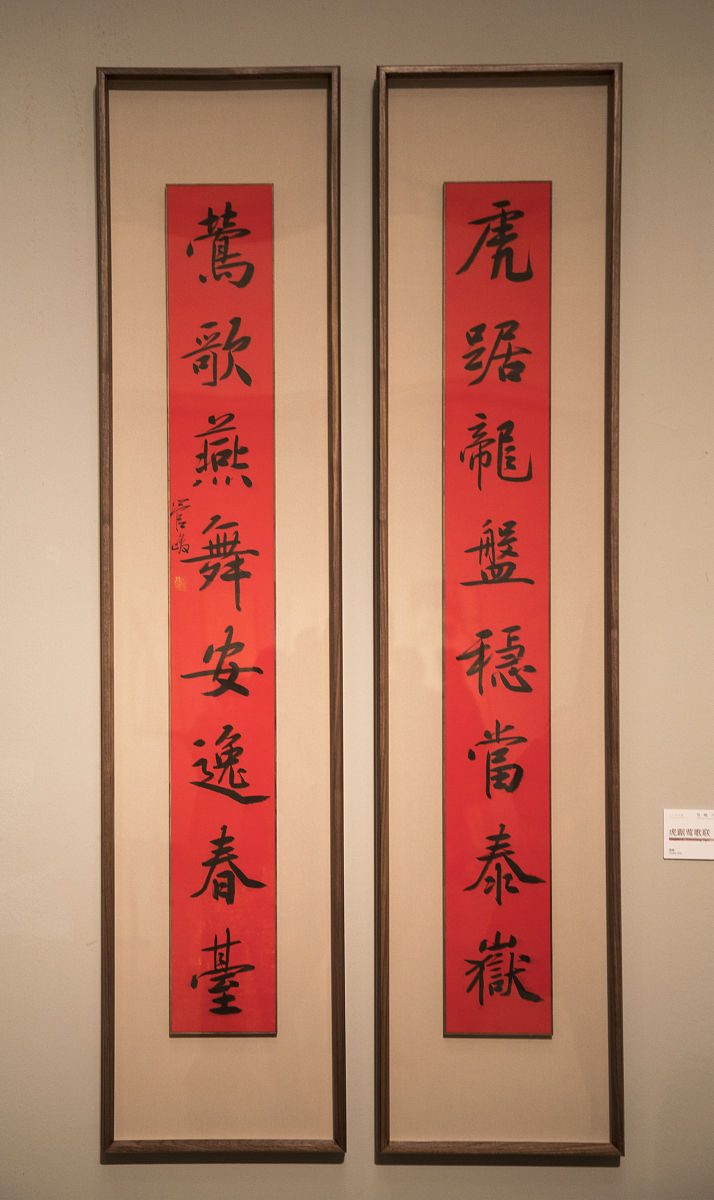 虎踞龍盤穩當泰嶽
鶯歌燕舞安逸春臺
管峻
虎踞莺歌联